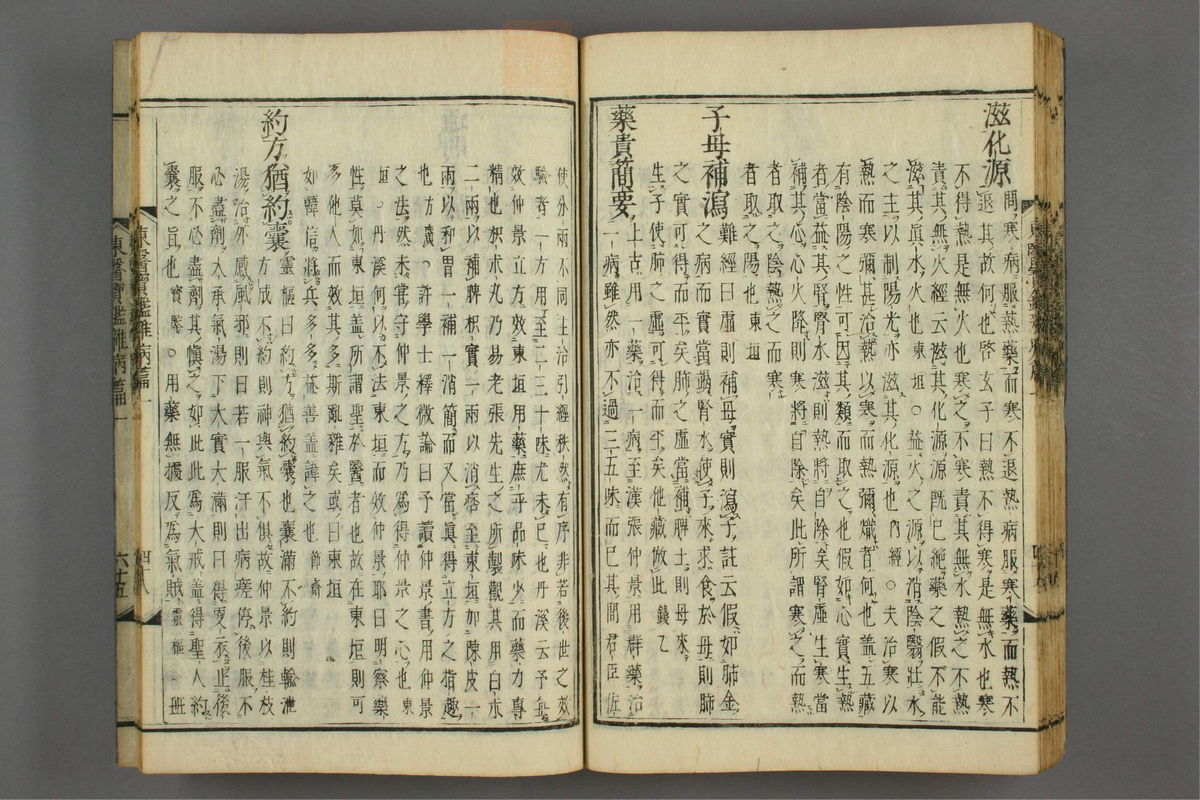 滋化源
問寒病服熱藥而寒不退熱病服寒藥而熱不
退其故何也啓玄子曰熱不得寒是無水也寒
不得熱是無火也寒之不寒責其無水熱之不熱
責其無火經云滋其化源源旣已絶藥之假不能
滋其眞水火也東垣○益火之源以消陰翳壯水
之主以制陽光亦滋其化源也內經○夫治寒以
熱而寒彌甚治熱以寒而熱彌熾者何也盖五藏
有陰陽之性可因其類而取之也假如心實生熱
者當益其腎腎水滋則熱將自除矣腎虛生寒當
補其心心火降則寒將自除矣此所謂寒之而熱
者取之陰熱之而寒
者取之陽也東垣
子母補瀉
難經曰虛則補母實則瀉子註云假如肺金
之病而實當瀉腎水使子來求食於母則肺
之實可得而平矣肺之虛當補脾土則母來
生子使肺之虛可得而平矣他藏倣此錢乙
藥貴簡要
上古用一藥治一病至漢張仲景用群藥治
一病雖然亦不過三五味而已其間君臣佐
使分兩不同主治引經秩然有序非若後世之效
驗者一方用至二三十味尤未已也丹溪云予每
效仲景立方效東垣用藥庶乎品味少而藥力專
精也枳朮丸乃易老張先生之所製觀其用白朮
二兩以補脾枳實一兩以消痞至東垣加陳皮一
兩以和胃一補一消簡而又當眞得立方之指趣
也方廣○許學士釋微論曰予讀仲景書用仲景
之法然未嘗守仲景之方乃為得仲景之心也東
垣○丹溪何以不法東垣而效仲景耶曰明察藥
性莫如東垣盖所謂聖於醫者也故在東垣則可
多他人而效其多斯亂雜矣或曰東垣
如韓信將兵多多益善盖諱之也節齋
約方猶約囊
靈樞曰約方猶約囊也囊滿不約則輸泄
方成不約則神與氣不俱故仲景以桂枝
湯治外感風邪則曰若一服汗出病瘥停後服不
必盡劑大承氣湯下大實大滿則曰得更衣止後
服不必盡劑其愼之如此此為大戒盖得聖人約
囊之旨也實鑑○用藥無據反為氣賊靈樞○一冊
東醫寶鑑雜病篇一
四十八
六十五